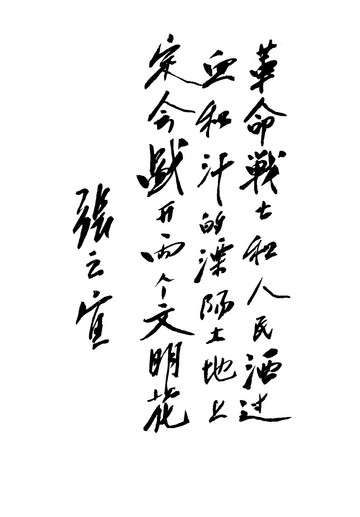 革命戰士和人民洒过
血和汗的溧陽土地上
定会开兩个文明花
張云宜